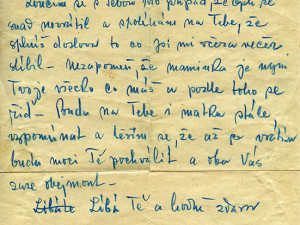 Loučím se s Tebou pro případ, že bych se
snad nevrátil a spoléhám na Tebe, že
splníš doslova to co jsi mi včera večer
slíbil – nezapomeň, že maminka je nyní
Tvoje všecko co máš a podle toho se
řiď – Budu na Tebe i matku stále
vzpomínat a těším se, že až se vrátím
budu moci Tě pochválit a oba Vás
zase obejmout –
Líbá Tě a hodně zdaru